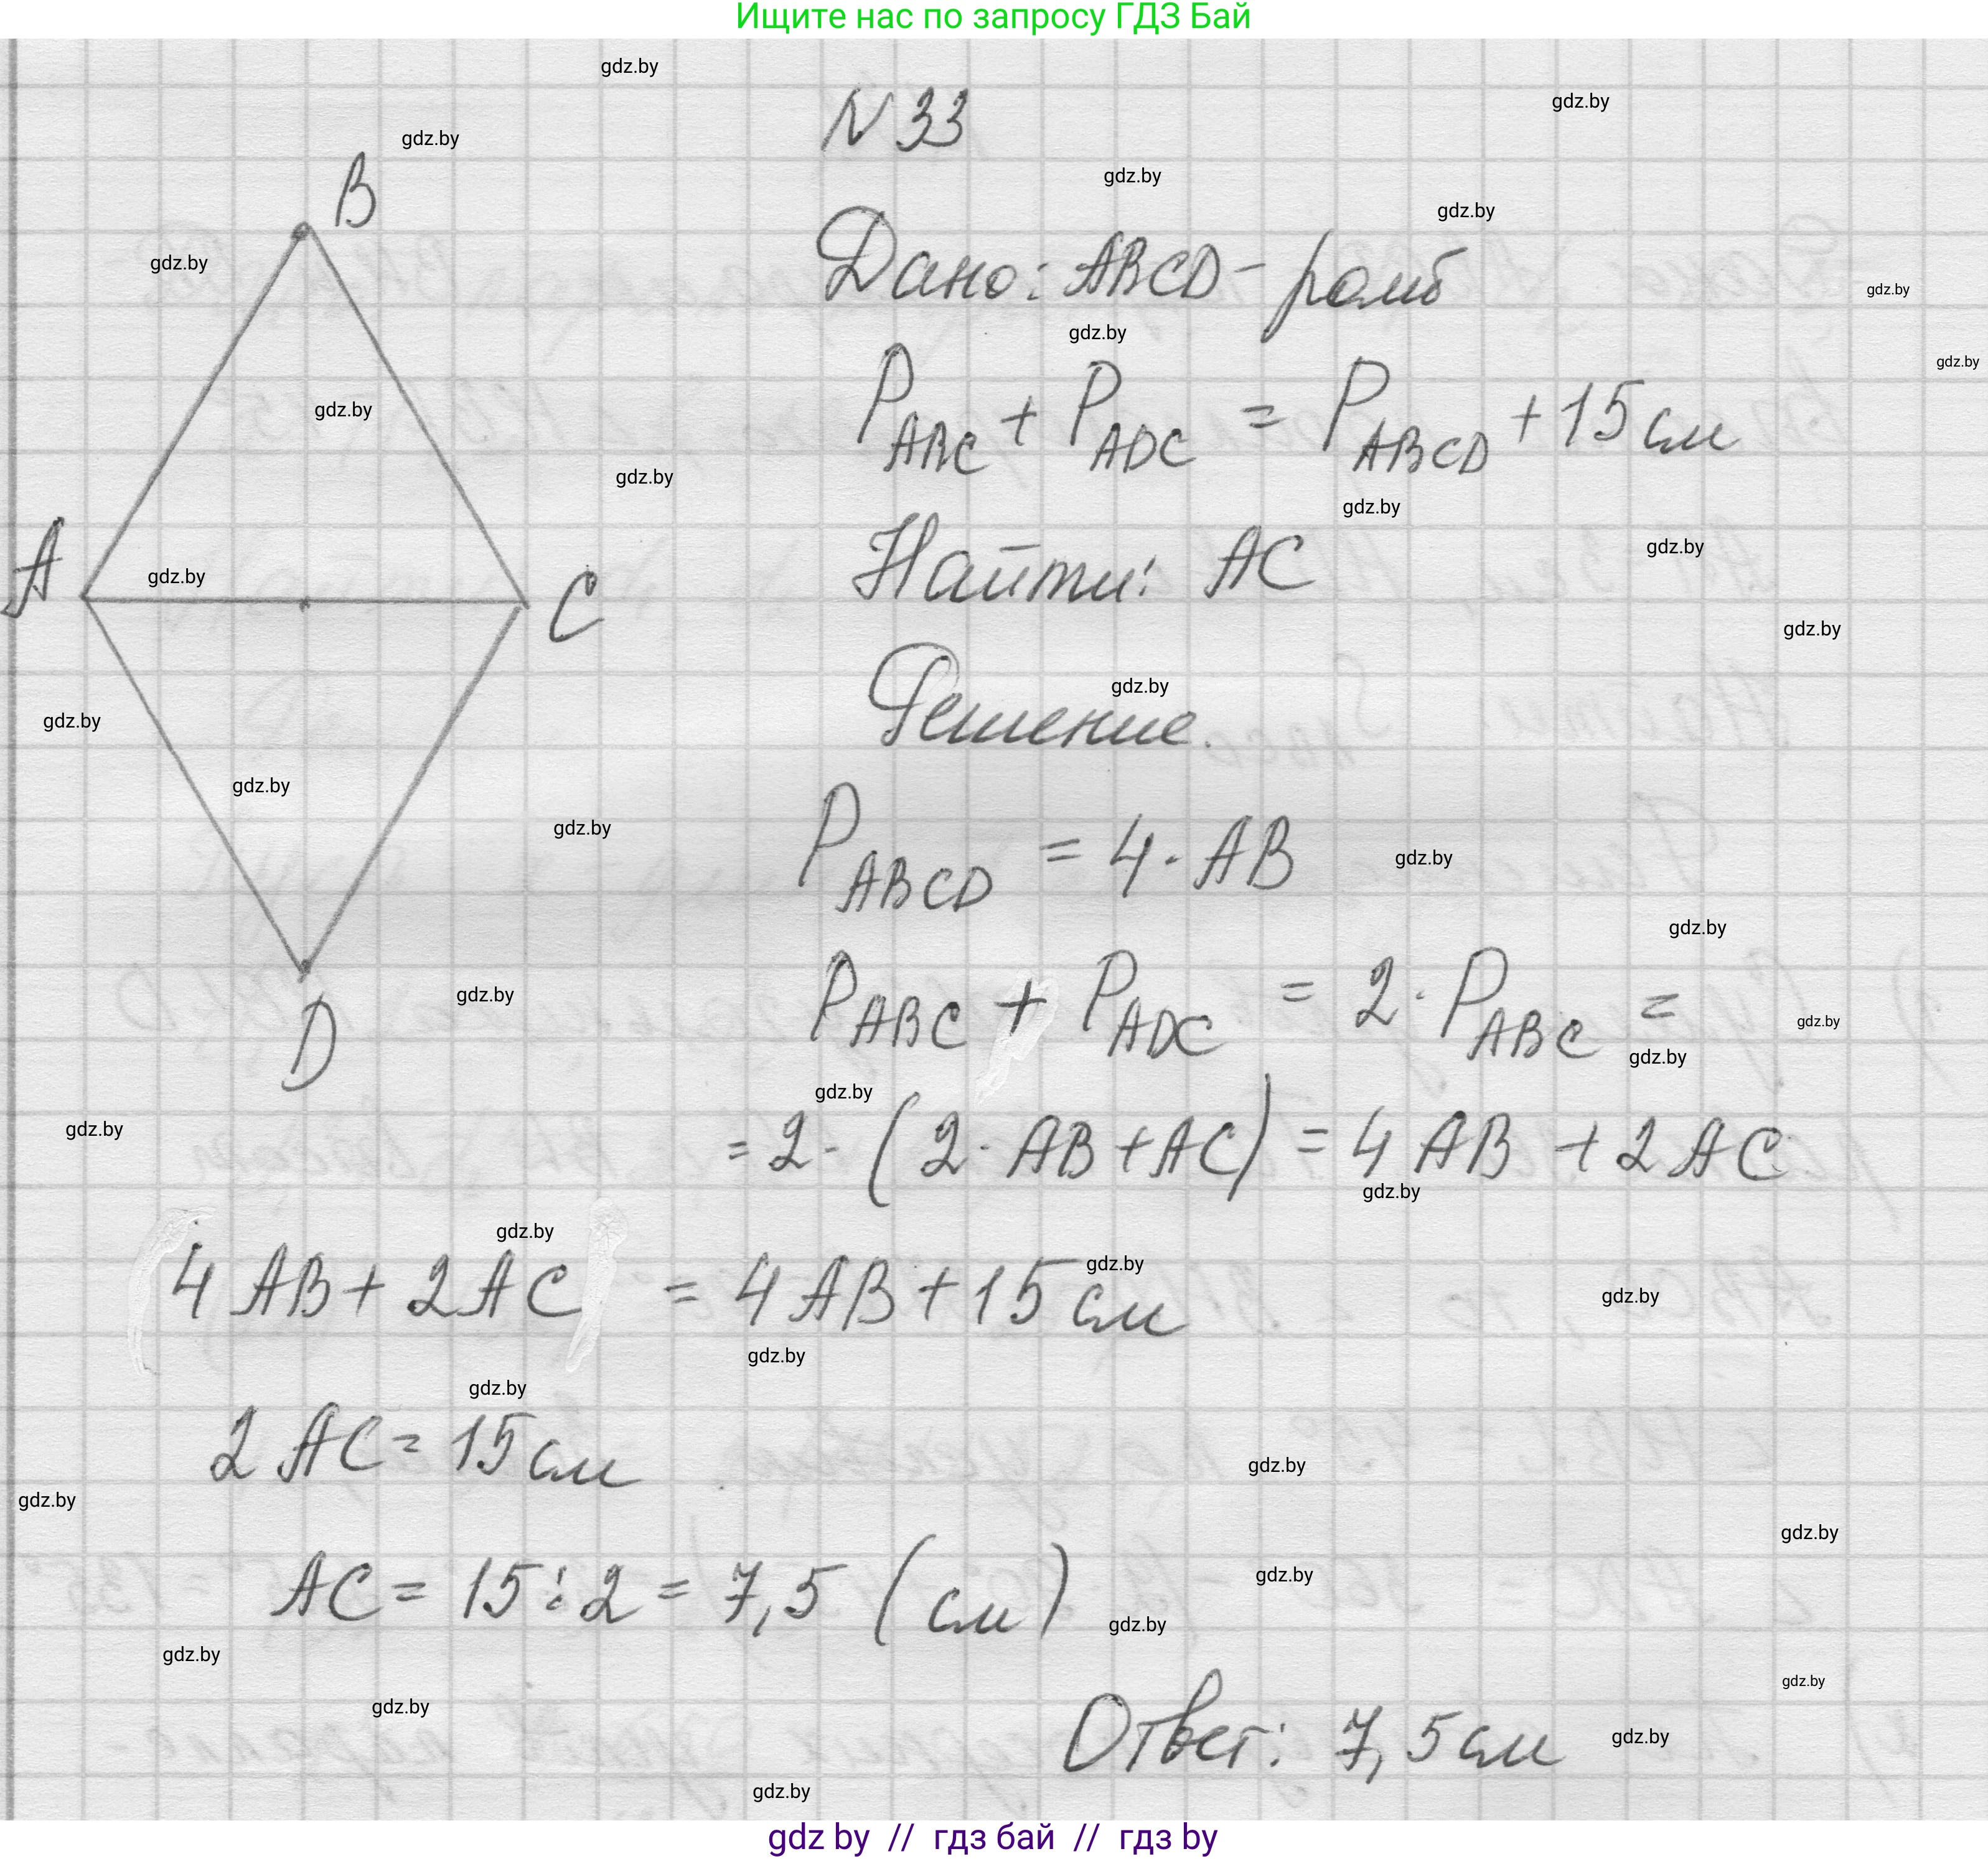 Ищите нас по запросу ГДЗ Бай
gdz.by
gdz.by
N 33
gdz.by
B
gdz.by
gdz.by
gdz.by
Дано: ABCD - ромб
gdz.by
gdz.by
gdz.by
P ABC + P ADC = P ABCD + 15 см
gdz.by
gdz.by
gdz.by
A
gdz.by
C
Найти: AC
gdz.by
gdz.by
Решение.
gdz.by
gdz.by
gdz.by
gdz.by
P ABCD = 4 · AB
gdz.by
gdz.by
gdz.by
D
P ABC + P ADC = 2 · P ABC =
gdz.by
gdz.by
gdz.by
gdz.by
= 2 · (2 · AB + AC) = 4 AB + 2 AC
gdz.by
gdz.by
4 AB + 2 AC = 4 AB + 15 см
gdz.by
gdz.by
gdz.by
gdz.by
2 AC = 15 см
gdz.by
gdz.by
gdz.by
AC = 15 : 2 = 7,5 (см)
gdz.by
gdz.by
gdz.by
gdz.by
gdz.by
Ответ: 7,5 см
gdz.by
gdz.by
gdz by // гдз бай // гдз by